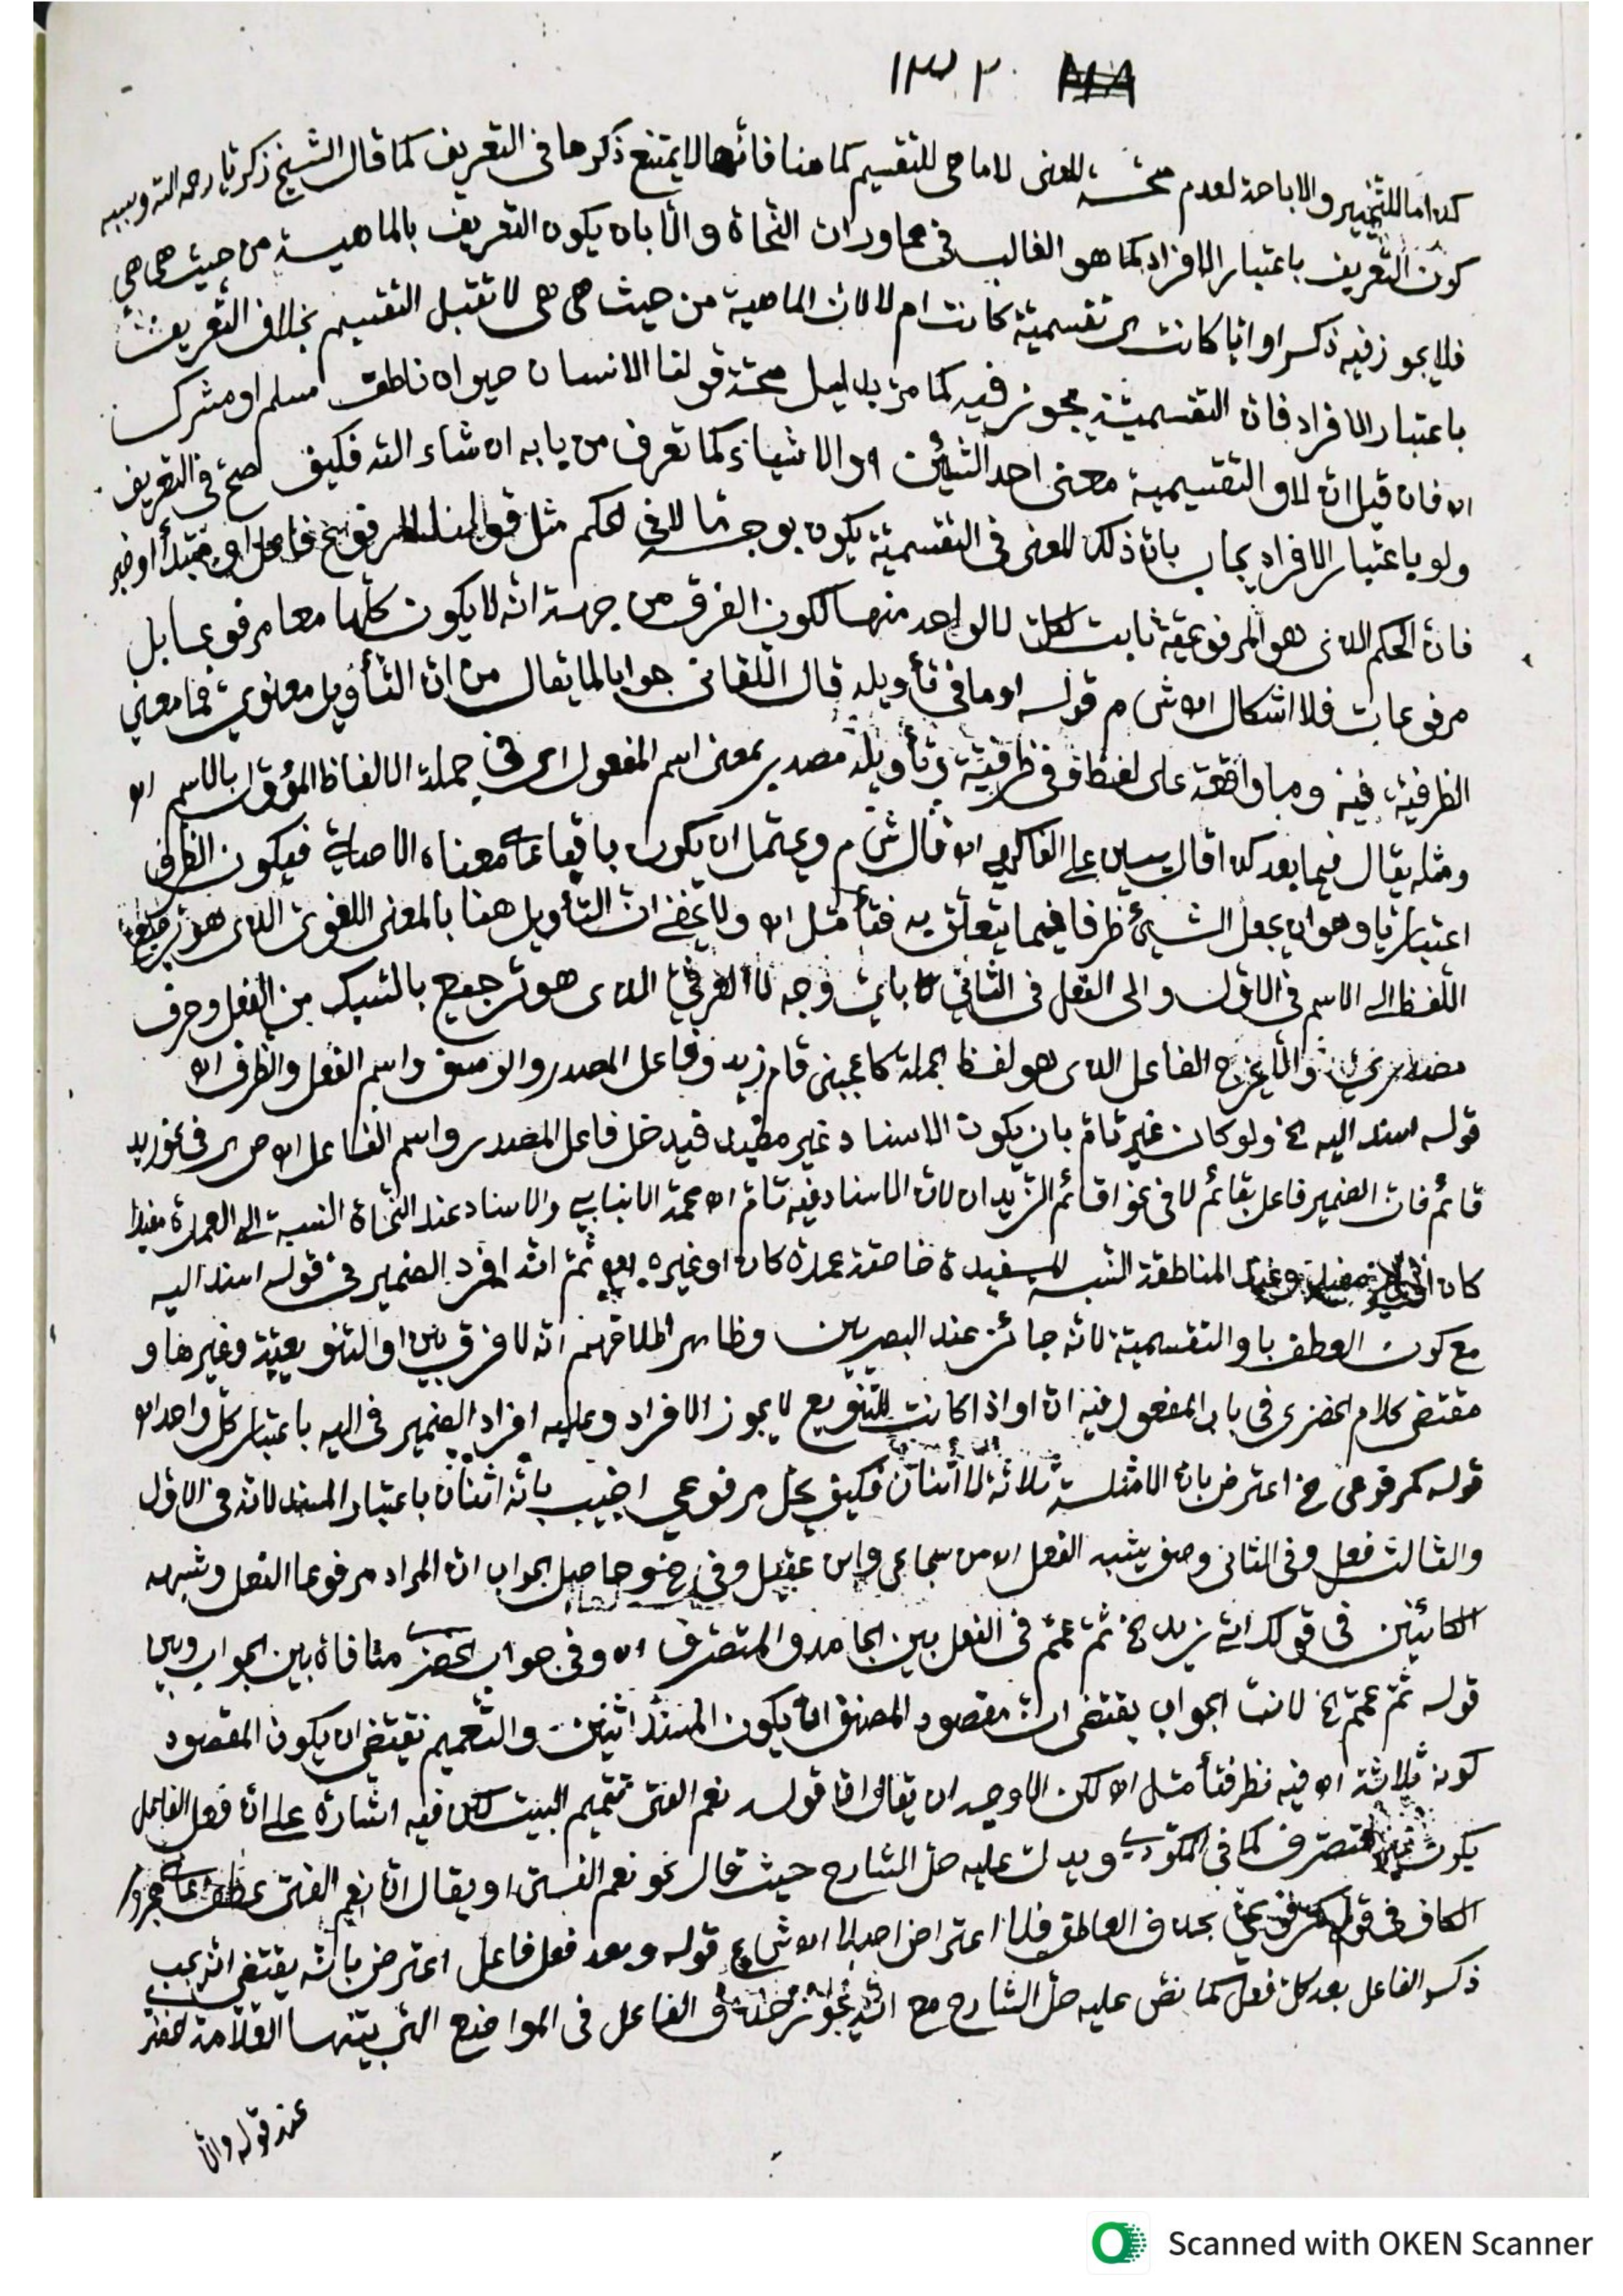 ١٣٢
كذا اما للتخيير والاباحة لعدم صحـة المعنى لا ما هي للتقسيم كما هنا فانها لا يمتنع ذكرها في التعريف كما قال الشيخ زكريا رحمه الله وسببه
كون التعريف باعتبار الافراد كما هو الغالب في محاورات النحاة والا بان يكون التعريف بالماهية من حيث هي هي
فلا يجوز فيه ذكر او ايا كانت اى تقسيمية كانت ام لا لان الماهية من حيث هي هي لا تقبل التقسيم بخلاف التعريف
باعتبار الافراد فان التقسيمية يجوز فيه كما مر بدليل صحة قولنا الانسان حيوان ناطق مسلم او مشرك
اه فان قيل ان لاو التقسيمية معنى احد الشيئين او الاشياء كما تعرف من بابه ان شاء الله فكيف تصح في التعريف
ولو باعتبار الافراد يجاب بان ذلك المعنى في التقسيمية يكون بوجه ما لا في الحكم مثل قولنا المرفوع فاعل او مبتدأ او خبر
فان الحكم الذى هو المرفوعية ثابت لكل لا لواحد منها لكون الفرق من جهة انه لا يكون كلها معا مرفوعا بل
مرفوعات فلا اشكال اه ش م قوله او ما في تأويله قال اللقاني جوابا لما يقال من ان التأويل معنوي فما معنى
الظرفية فيه وما واقعة على لفظ وفي ظرفية وتأويله مصدر بمعنى اسم المفعول اى في جملة الالفاظ المؤول بالاسم اه
ومثله يقال فيما بعد كذا قال يسين على الفاكهي اه قال ش م ويحتمل ان يكون باقيا على معناه الاصلية فيكون الظرف
اعتباريا وهو ان يجعل الشيئ ظرفا فيما يتعلق به فتأمثل اه ولا يخفى ان التأويل هنا بالمعنى اللغوى الذى هو ترجيع
اللفظ الى الاسم في الاول والى الفعل في الثاني باي وجه لا العرفي الذى هو ترجيع بالسبك من الفعل وحرف
مصدري والا يخرج الفاعل الذى هو لفظ الجملة كاعجبني قام زيد وفاعل المصدر والوصف واسم الفعل والظرف اه
قوله اسند اليه الخ ولو كان غير تام بان يكون الاسناد غير مفيد فيدخل فاعل المصدر واسم الفاعل اه ص اى في نحو زيد
قائم فان الضمير فاعل بقائم لا في نحو اقائم الزيدان لان الاسناد فيه تام اه محمد الانبابي والاسناد عند النحاة النسبة الى العمدة مفيدا
كان او غير مفيد وعند المناطقة النسبة المفيدة خاصة عمدة كان او غيره ثم انه افرد الضمير في قوله اسند اليه
مع كون العطف باو التقسيمية لانه جائز عند البصريين وظاهر اطلاقهم انه لا فرق بين او التنويعية وغيرها و
مقتضى كلام الخضرى في باب المفعول فيه ان او اذا كانت للتنويع لا يجوز الافراد وعليه افراد الضمير في اليه باعتبار كل واحد اه
قوله كمرفوعى الخ اعترض بان الامثلة ثلاثة لا اثنان فكيف يخل مرفوعي اجيب بانه اثنان باعتبار المسند لانه في الاول
والثالث فعل وفي الثاني وصف يشبه الفعل اه من سجاعى وابن عقيل وفي خض وحاصل الجواب ان المراد مرفوعا الفعل وشبهه
الكائنين في قولك اتى زيد الخ ثم عمم في الفعل بين الجامد والمتصرف اه وفي جواب الخضري منافاة بين الجواب وبين
قوله ثم عمم الخ لانت الجواب يقتضى ان مقصود المصنف ان يكون المسند اثنين والتعميم يقتضى ان يكون المقصود
كونه ثلاثة اه فيه نظر فتأمثل اه لكن الاوجه ان يقال ان قوله نعم الفتى تتميم البيت لكن فيه اشارة على ان فعل الفاعل
يكون غير متصرف كما في المكودي ويدل عليه حل الشارح حيث قال نحو نعم الفتى او يقال ان نعم الفتى عطف على مجرور
الكاف في قوله كمرفوعي بحذف العاطف فلا اعتراض اصلا اه ش ع قوله وبعد فعل فاعل اعترض بانه يقتضى انه يجب
ذكر الفاعل بعد كل فعل كما نص عليه حل الشارح مع انه يجوز حذف الفاعل في المواضع التي بينها العلامة خضر
عند قوله والا
Scanned with OKEN Scanner